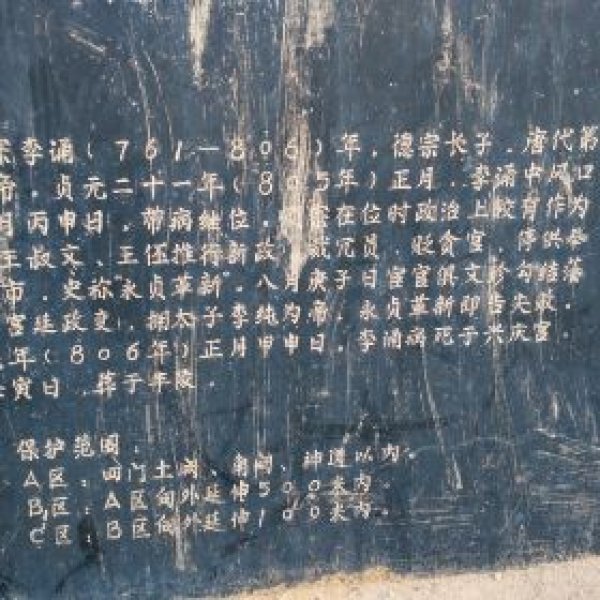 宗李诵(761—806)年，德宗长子，唐代第
帝，贞元二十一年(805年)正月，李诵中风口
月丙申日，带病继位，在位时政治上较有作为
王叔文、王伍推行新政，裁冗员，收贪官，停供奉
市，史称"永贞革新"。八月庚子日宦官俱文珍勾结藩
宫廷政变，拥太子李纯为帝，永贞革新即告失败。
年(806年)正月甲申日，李诵病死于兴庆宫。
寅日，葬于丰陵。
保护范围：
A区：四门土阙、角阙、神道以内。
B区：A区向外延伸500米内。
C区：B区向外延伸100米内。